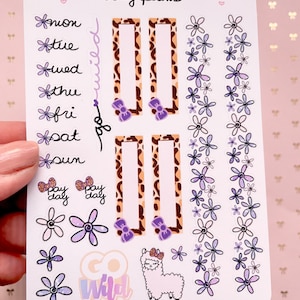 mon
tue
wed
thu
fri
sat
sun
go wild
pay
day
pay
day
GO
Wild